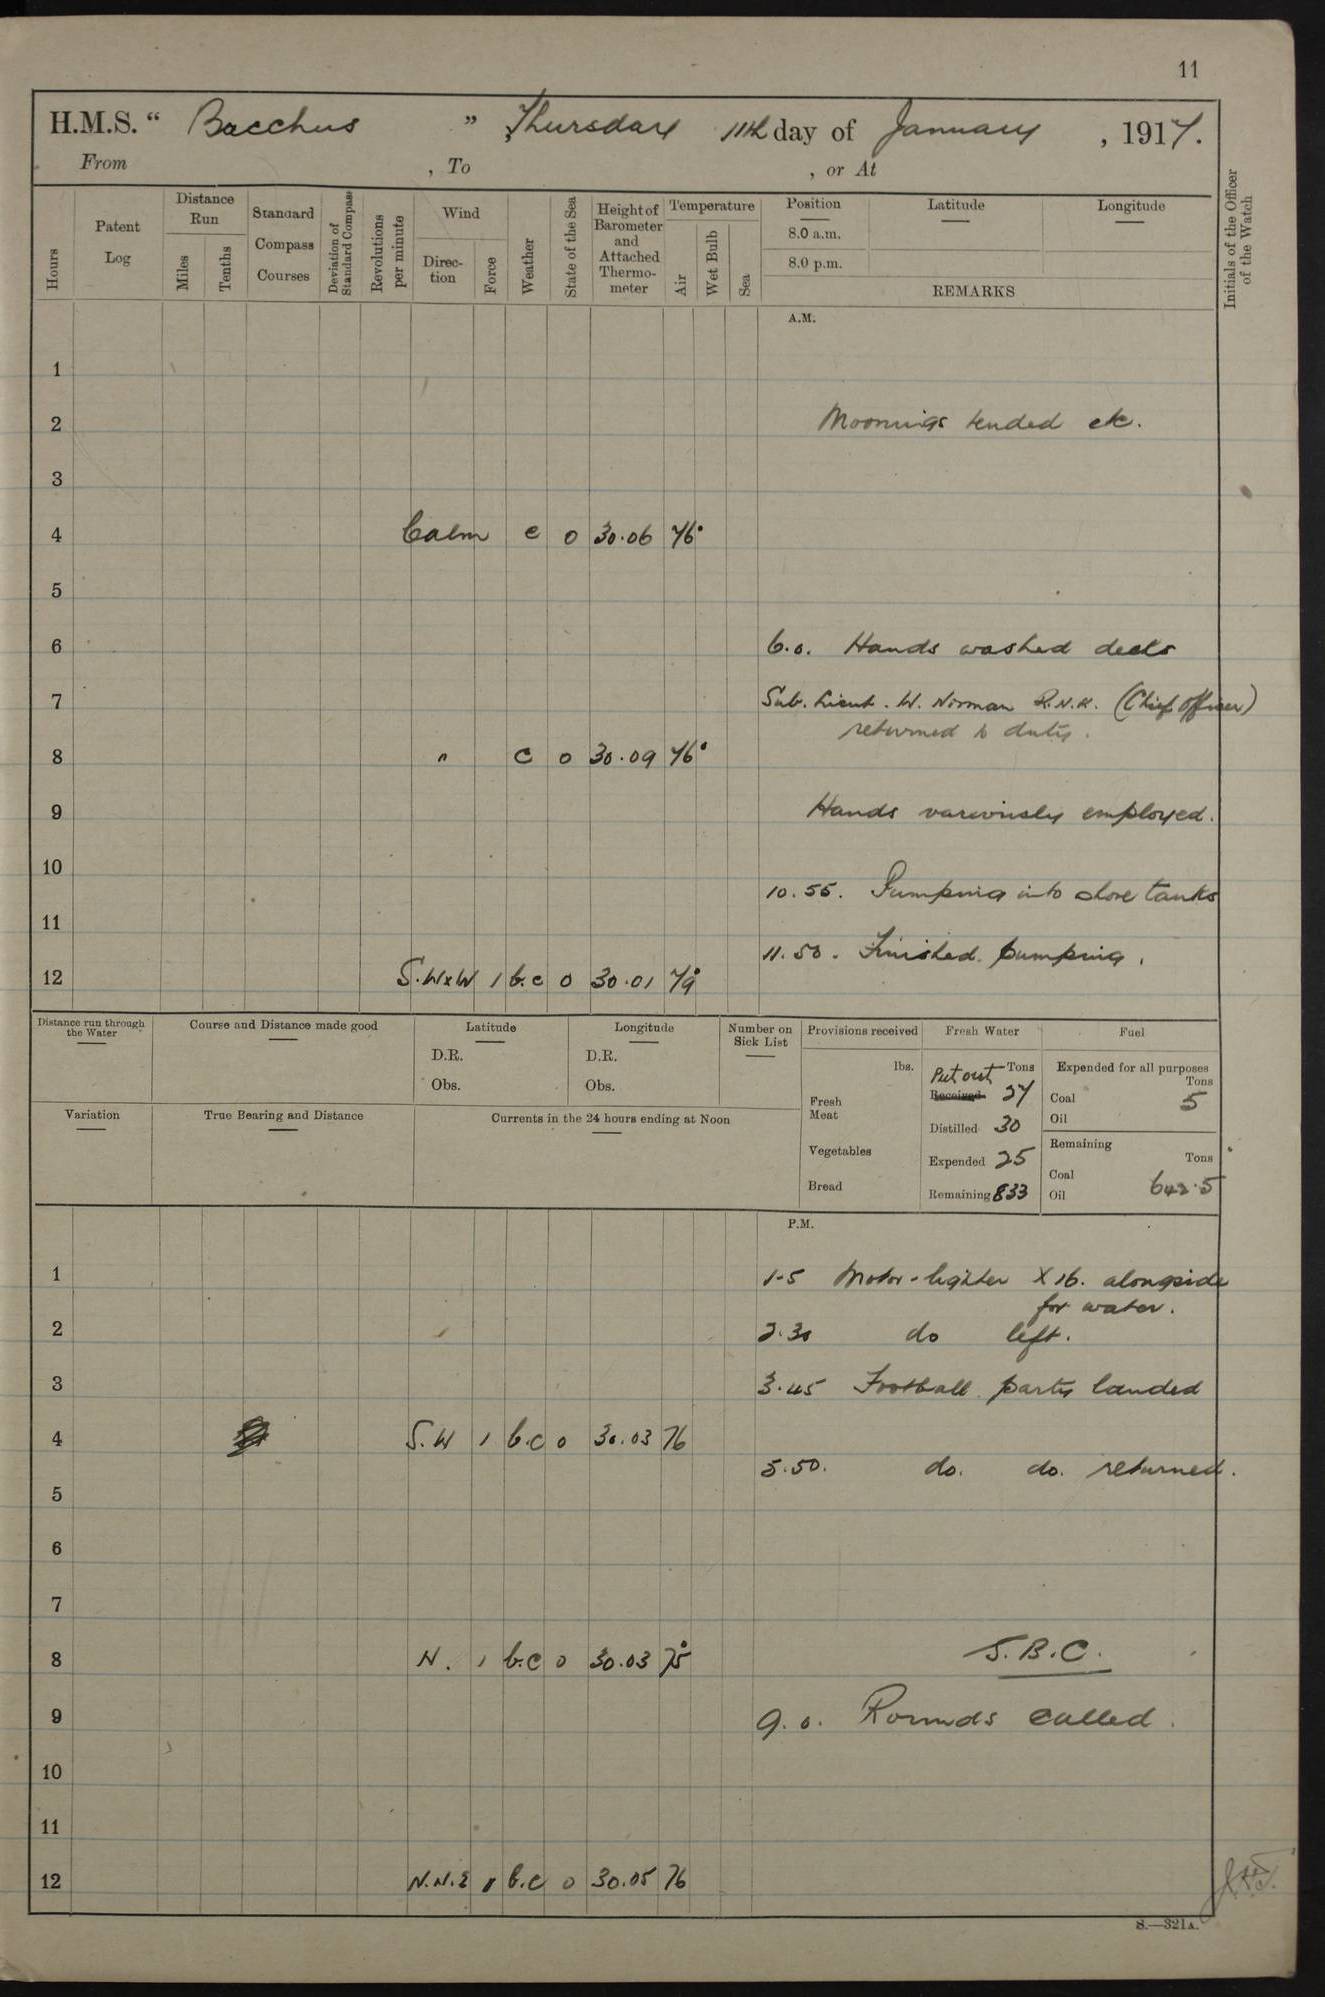 11
H.M.S. “ Bacchus ” Thursday 11th day of January , 1917.
From , To , or At
Hours
Patent Log
Distance Run
Miles
Tenths
Standard Compass Courses
Deviation of Standard Compass
Revolutions per minute
Wind
Direc-tion
Force
Weather
State of the Sea
Height of Barometer and Attached Thermo-meter
Temperature
Air
Wet Bulb
Sea
Position
8.0 a.m.
8.0 p.m.
Latitude
Longitude
REMARKS
Initials of the Officer of the Watch
A.M.
1
2 Moorings tended etc.
3
4 Calm c 0 30.06 76°
5
6 6.0. Hands washed decks
7 Sub. Lieut. W. Norman R.N.R. (Chief Officer)
returned to duty.
8 " c 0 30.09 76°
9 Hands variously employed.
10
10.55. Pumping into shore tanks
11
11.50. Finished pumping.
12 S.W x W 1 b.c 0 30.01 79°
Distance run through the Water
Course and Distance made good
Latitude
D.R.
Obs.
Longitude
D.R.
Obs.
Number on Sick List
Provisions received
lbs.
Fresh Meat
Vegetables
Bread
Fresh Water
Tons
Put out
Received 27
Distilled 30
Expended 25
Remaining 833
Fuel
Expended for all purposes
Tons
Coal 5
Oil
Remaining
Tons
Coal
Oil 642.5
Variation
True Bearing and Distance
Currents in the 24 hours ending at Noon
P.M.
1 1-5 Motor-lighter X 16. alongside
for water.
2 2.30 do left.
3 3.45 Football party landed
4 S.W 1 b.c 0 30.03 76
5.50. do. do. returned.
5
6
7
8 N. 1 b.c 0 30.03 75° S.B.C.
9 9.0. Rounds called.
10
11
12 N.N.E 1 b.c 0 30.05 76
S.—321A.